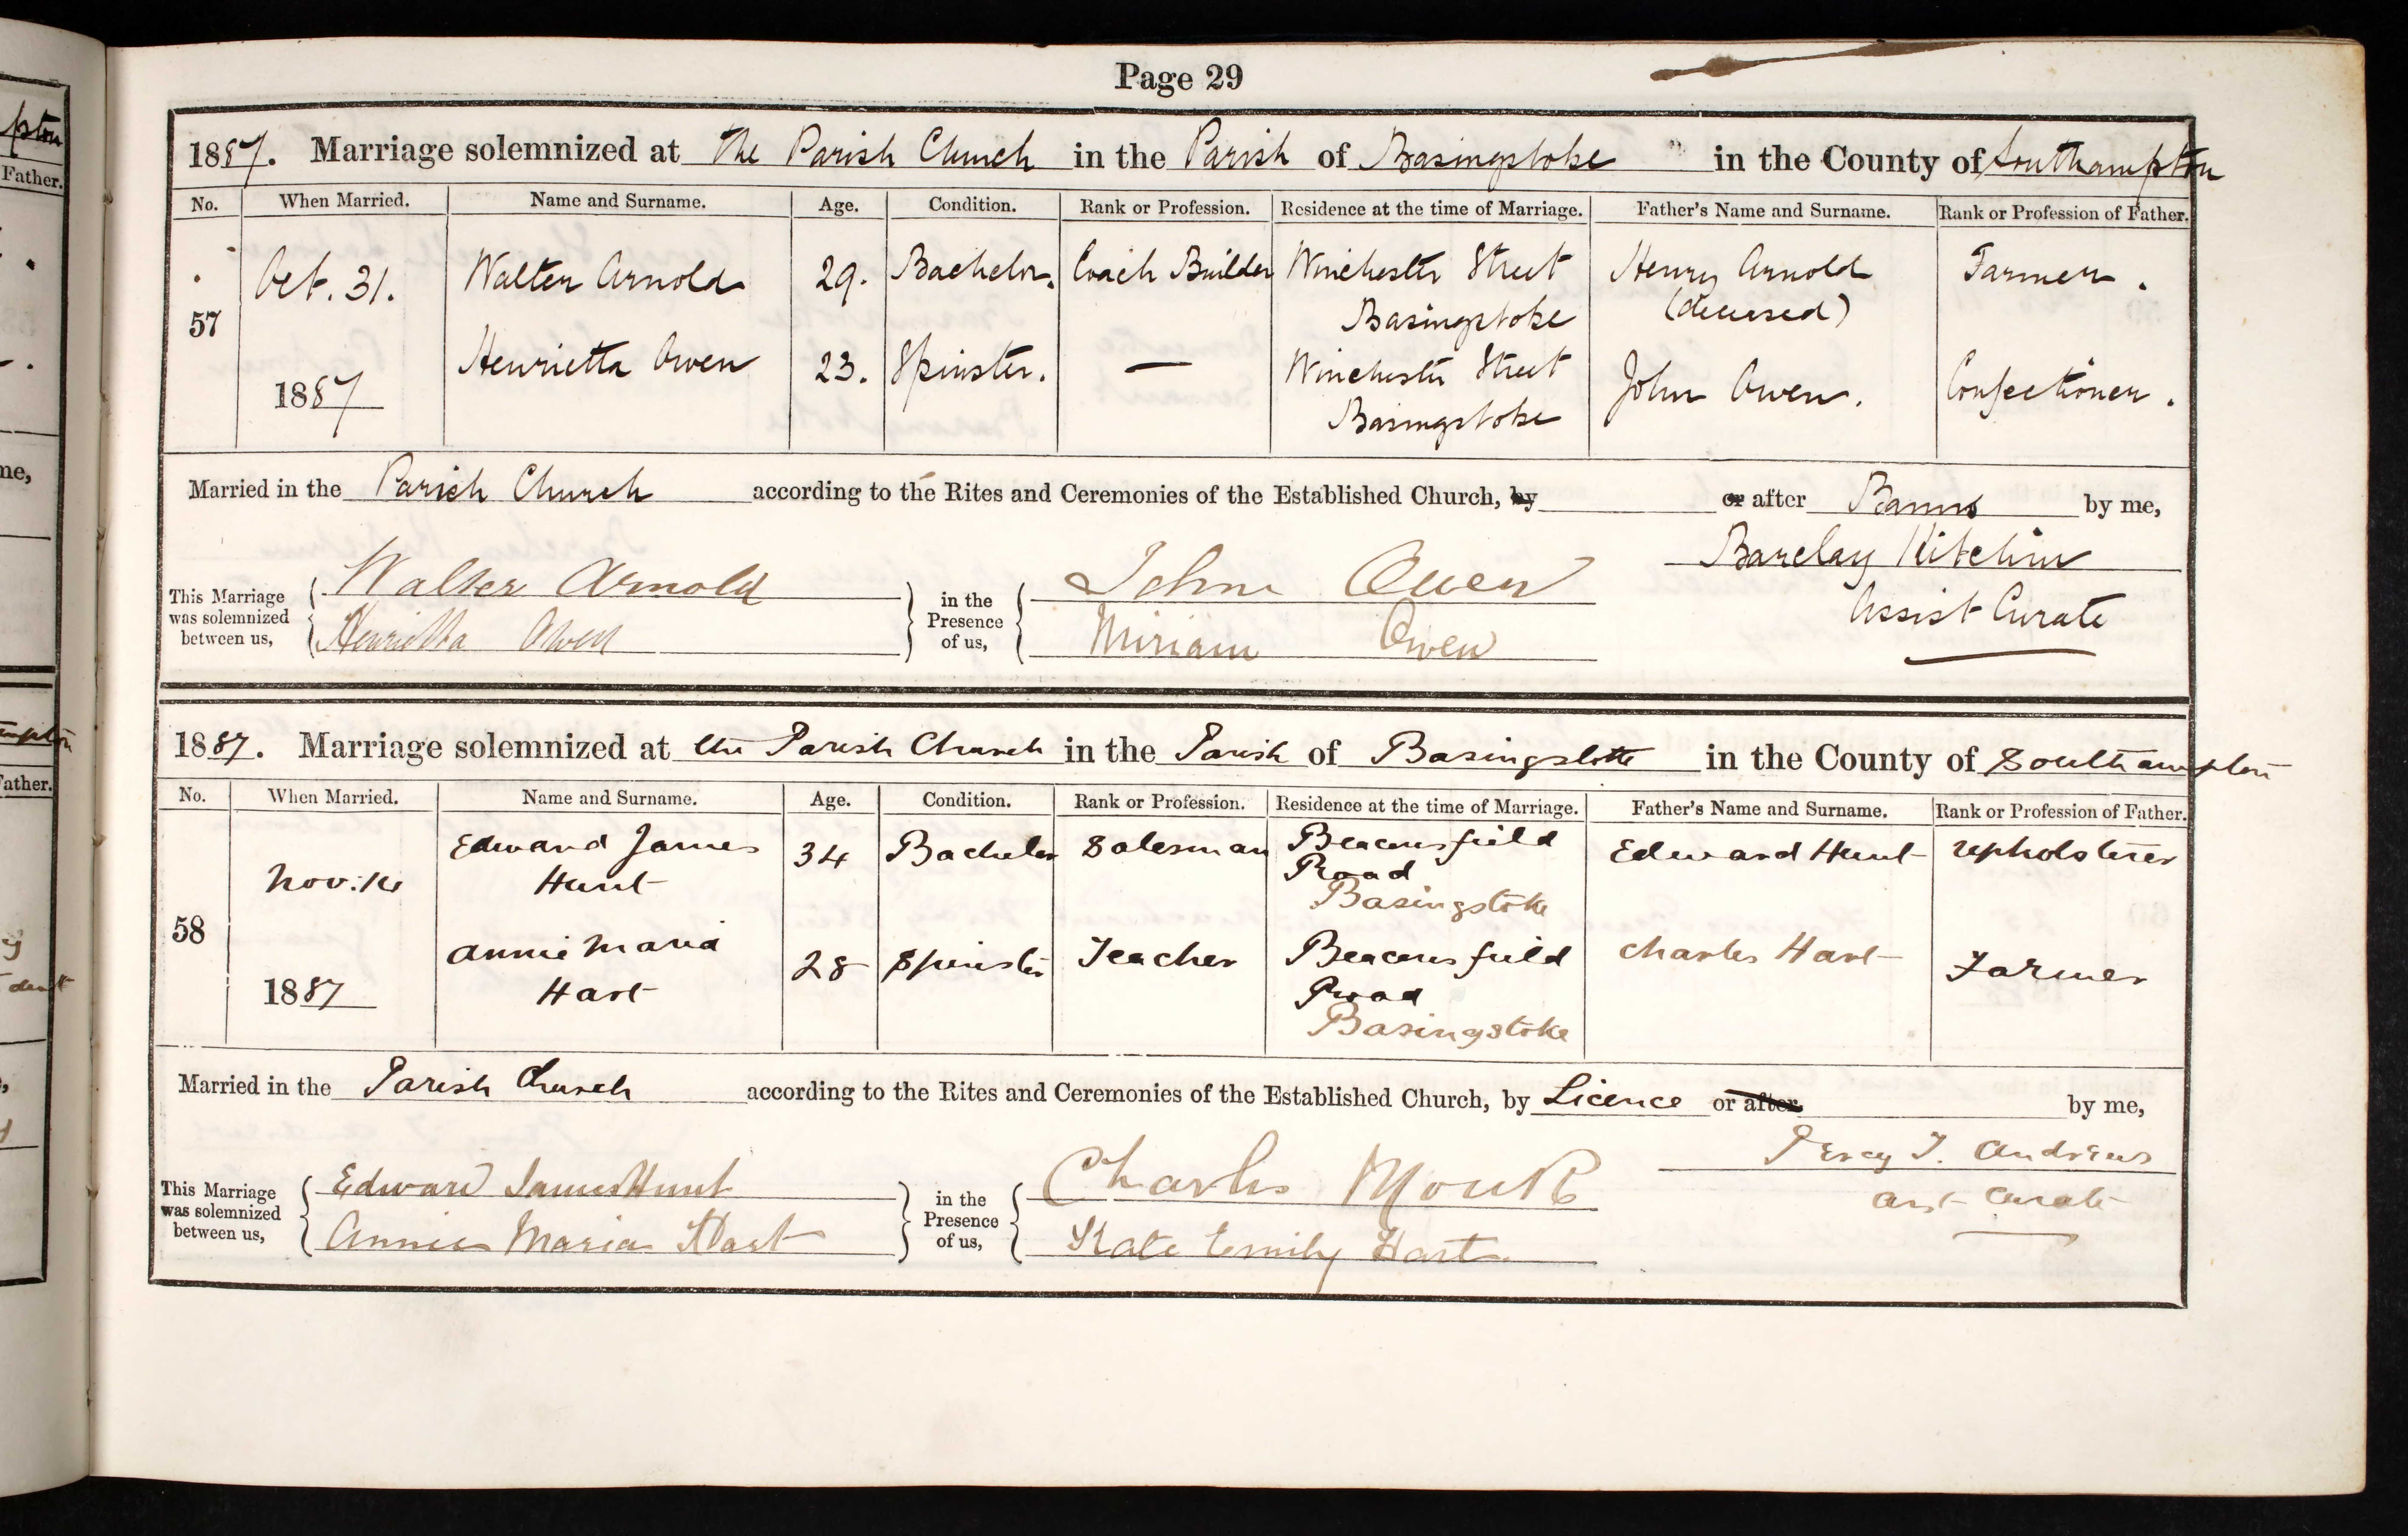 Page 29
1887. Marriage solemnized at The Parish Church in the Parish of Basingstoke in the County of Southampton
No. When Married. Name and Surname. Age. Condition. Rank or Profession. Residence at the time of Marriage. Father's Name and Surname. Rank or Profession of Father.
57 Oct. 31. Walter Arnold 29. Bachelor. Coach Builder Winchester Street Henry Arnold Farmer.
Basingstoke (deceased)
1887 Henrietta Owen 23. Spinster. — Winchester Street John Owen. Confectioner.
Basingstoke
Married in the Parish Church according to the Rites and Ceremonies of the Established Church, by or after Banns by me,
Barclay Kitchin
Assist Curate
This Marriage was solemnized between us, Walter Arnold in the Presence of us, John Owen
Henrietta Owen Miriam Owen
1887. Marriage solemnized at the Parish Church in the Parish of Basingstoke in the County of Southampton
No. When Married. Name and Surname. Age. Condition. Rank or Profession. Residence at the time of Marriage. Father's Name and Surname. Rank or Profession of Father.
58 Nov: Edward James 34 Bachelor Salesman Beaconsfield Edward Hunt Upholsterer
Hunt Road
Basingstoke
1887 Annie Maria 28 Spinster Teacher Beaconsfield Charles Hart Farmer
Hart Road
Basingstoke
Married in the Parish Church according to the Rites and Ceremonies of the Established Church, by Licence or after by me,
Percy J. Andrews
Asst Curate
This Marriage was solemnized between us, Edward James Hunt in the Presence of us, Charles
Annie Maria Hart Kate Emily Hart